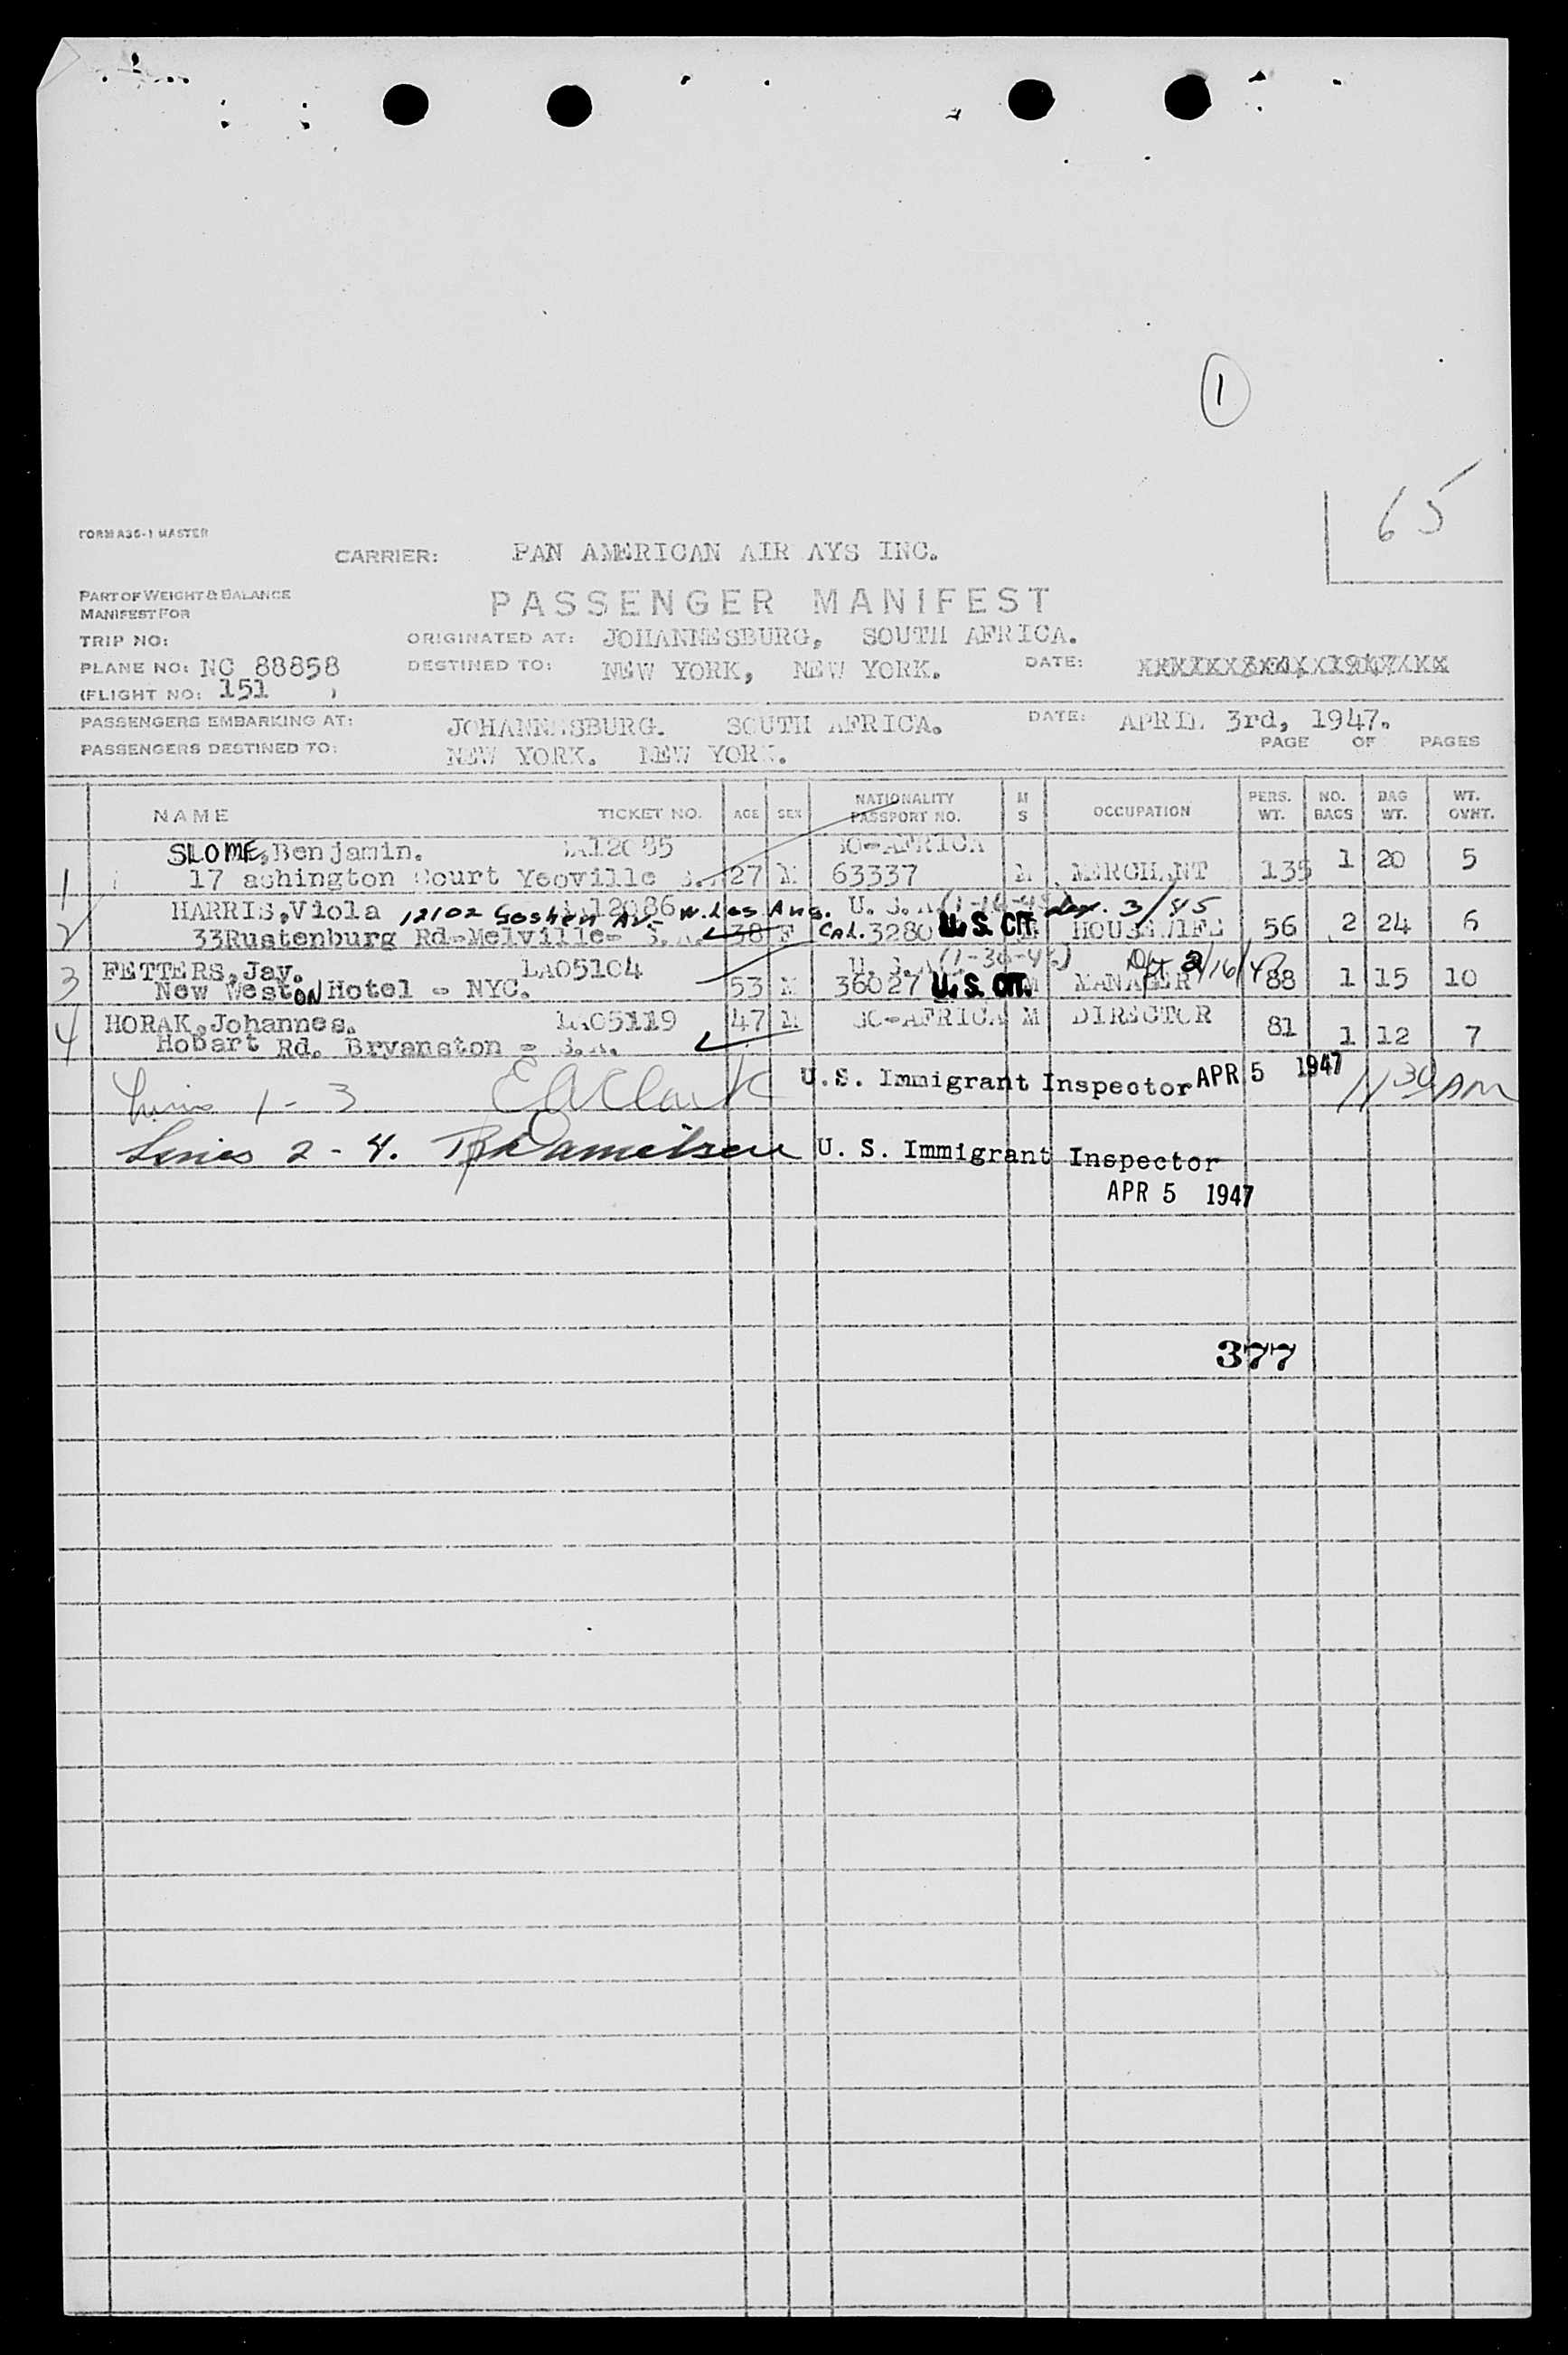 1
65
FORM A36-1 MASTER
CARRIER: PAN AMERICAN AIR AYS INC.
PART OF WEIGHT & BALANCE
MANIFEST FOR
PASSENGER MANIFEST
TRIP NO: ORIGINATED AT: JOHANNESBURG, SOUTH AFRICA.
PLANE NO: NC 88858 DESTINED TO: NEW YORK, NEW YORK. DATE:
(FLIGHT NO: 151 )
PASSENGERS EMBARKING AT: JOHANNESBURG. SOUTH AFRICA. DATE: APRIL 3rd, 1947.
PAGE OF PAGES
PASSENGERS DESTINED TO: NEW YORK. NEW YORK.
NAME TICKET NO. AGE SEX NATIONALITY PASSPORT NO. M S OCCUPATION PERS. WT. NO. BAGS BAG WT. WT. OVHT.
SLOME, Benjamin. LA12085 SO-AFRICA
1 17 ashington Court Yeoville S.A. 27 M 63337 M MERCHANT 135 1 20 5
HARRIS, Viola 12102 Goshen Av- W. Los Ang. 12086 U. S. A 3/45
2 33Rustenburg Rd-Melville- S.A. 38 F Cal. 3280 U. S. CIT. HOUSEWIFE 56 2 24 6
3 FETTERS, Jay. LA05104 U. S. A
New WestON Hotel - NYC. 53 M 36027 U. S. CIT. M MANAGER 88 1 15 10
4 HORAK, Johannes. LA05119 47 M SO-AFRICA M DIRECTOR 81 1 12 7
Hobart Rd. Bryanston - S.A.
Lines 1-3 E A Clark U.S. Immigrant Inspector APR 5 1947 11 30 AM
Lines 2-4. U. S. Immigrant Inspector
APR 5 1947
377